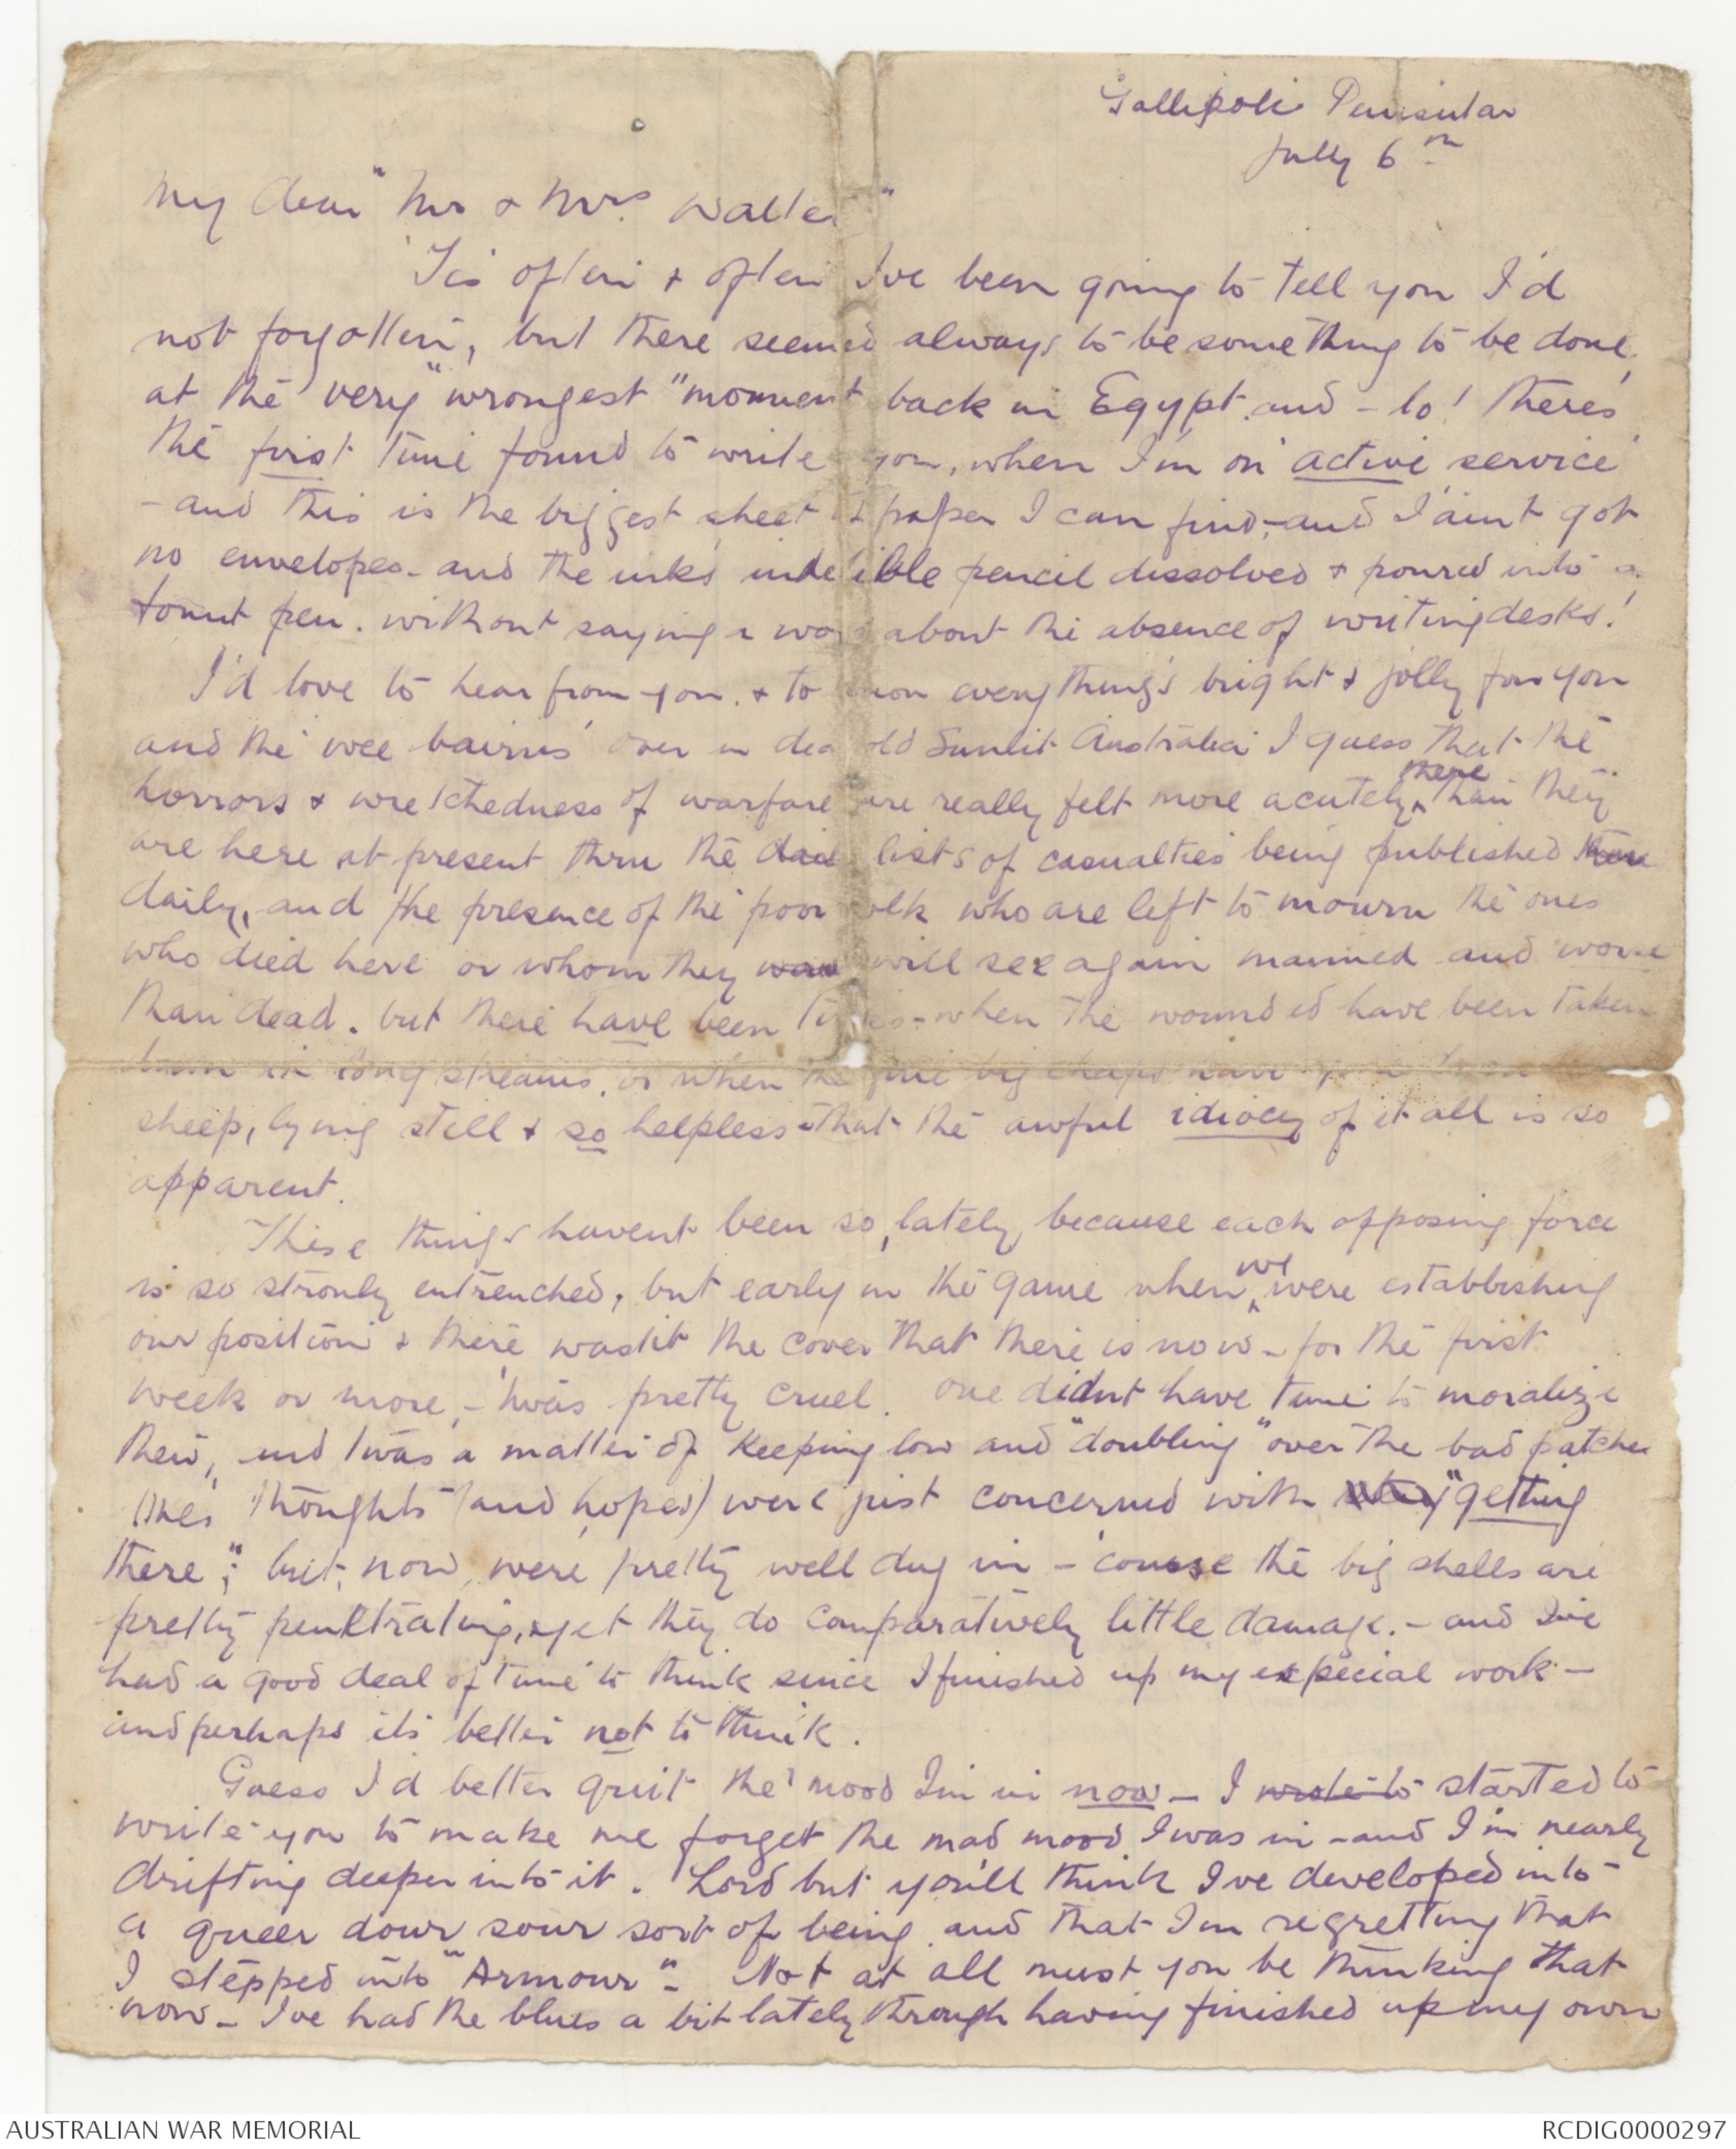 Gallipoli Penisular
July 6th
My dear "Mr & Mrs. Walter"
'Tis often & often I've been going to tell you I'd
not forgotten, but there seemed always to be something to be done,
at the very "wrongest" moment back in Egypt. and - lo! there's
the first time found to write you, when I'm on active service
- and this is the biggest sheet of paper I can find, - and I ain't got
no envelopes - and the ink's indelible pencil dissolved & poured into a
fount pen. without saying a word about the absence of writing desks!
I'd love to hear from you. & to know everything's bright & jolly for you
and the 'wee bairns' over in dear old Sunlit Australia I guess that the
horrors & wretchedness of warfare are really felt more acutely there than they
are here at present thru the daily lists of casualties being published there
daily, and the presence of the poor folk who are left to mourn the ones
who died here or whom they will see again maimed and worse
than dead. but there have been times - when the wounded have been taken
down in long streams, or when the fine big chaps have
sheep, lying still & so helpless - that the awful idiocy of it all is so
apparent.
These things havent been so, lately, because each opposing force
is so stronly entrenched, but early in the game when we were establishing
our position & there wasnt the cover that there is now - for the first
week or more, - 'twas pretty cruel. One didnt have time to moralize
then, and twas a matter of keeping low and "doubling" over the bad patches
Ones thoughts (and hopes) were just concerned with "getting
there"; but, now, we're pretty well dug in - 'course the big shells are
pretty penetrating, & yet they do comparatively little damage. - and I've
had a good deal of time to think since I finished up my especial work -
and perhaps its better not to think.
Guess I'd better quit the mood Im in now - I wrote to started to
write you to make me forget the mad mood I was in - and I'm nearly
drifting deeper into it. Lord but you'll think I've developed into
a queer dour sour sort of being and that I'm regretting that
I stepped into "Armour". Not at all must you be thinking that
now - I've had the blues a bit lately through having finished up my own
AUSTRALIAN WAR MEMORIAL
RCDIG0000297